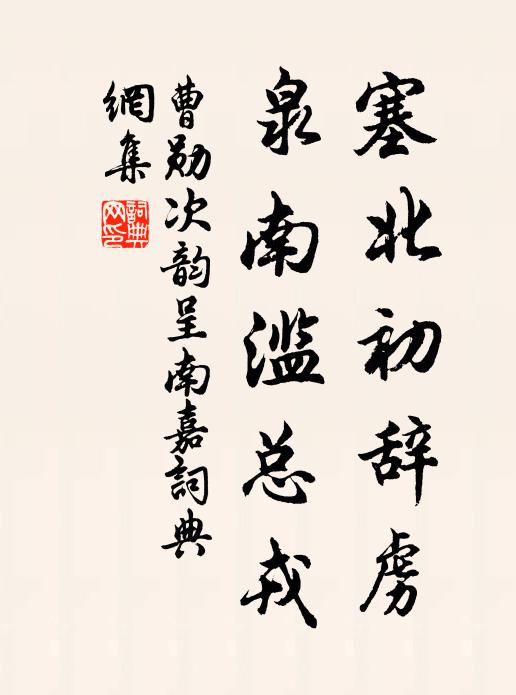 塞北初辞虏
泉南滥总戎
曹勋次韵呈南嘉詞典
網集
詞典网印